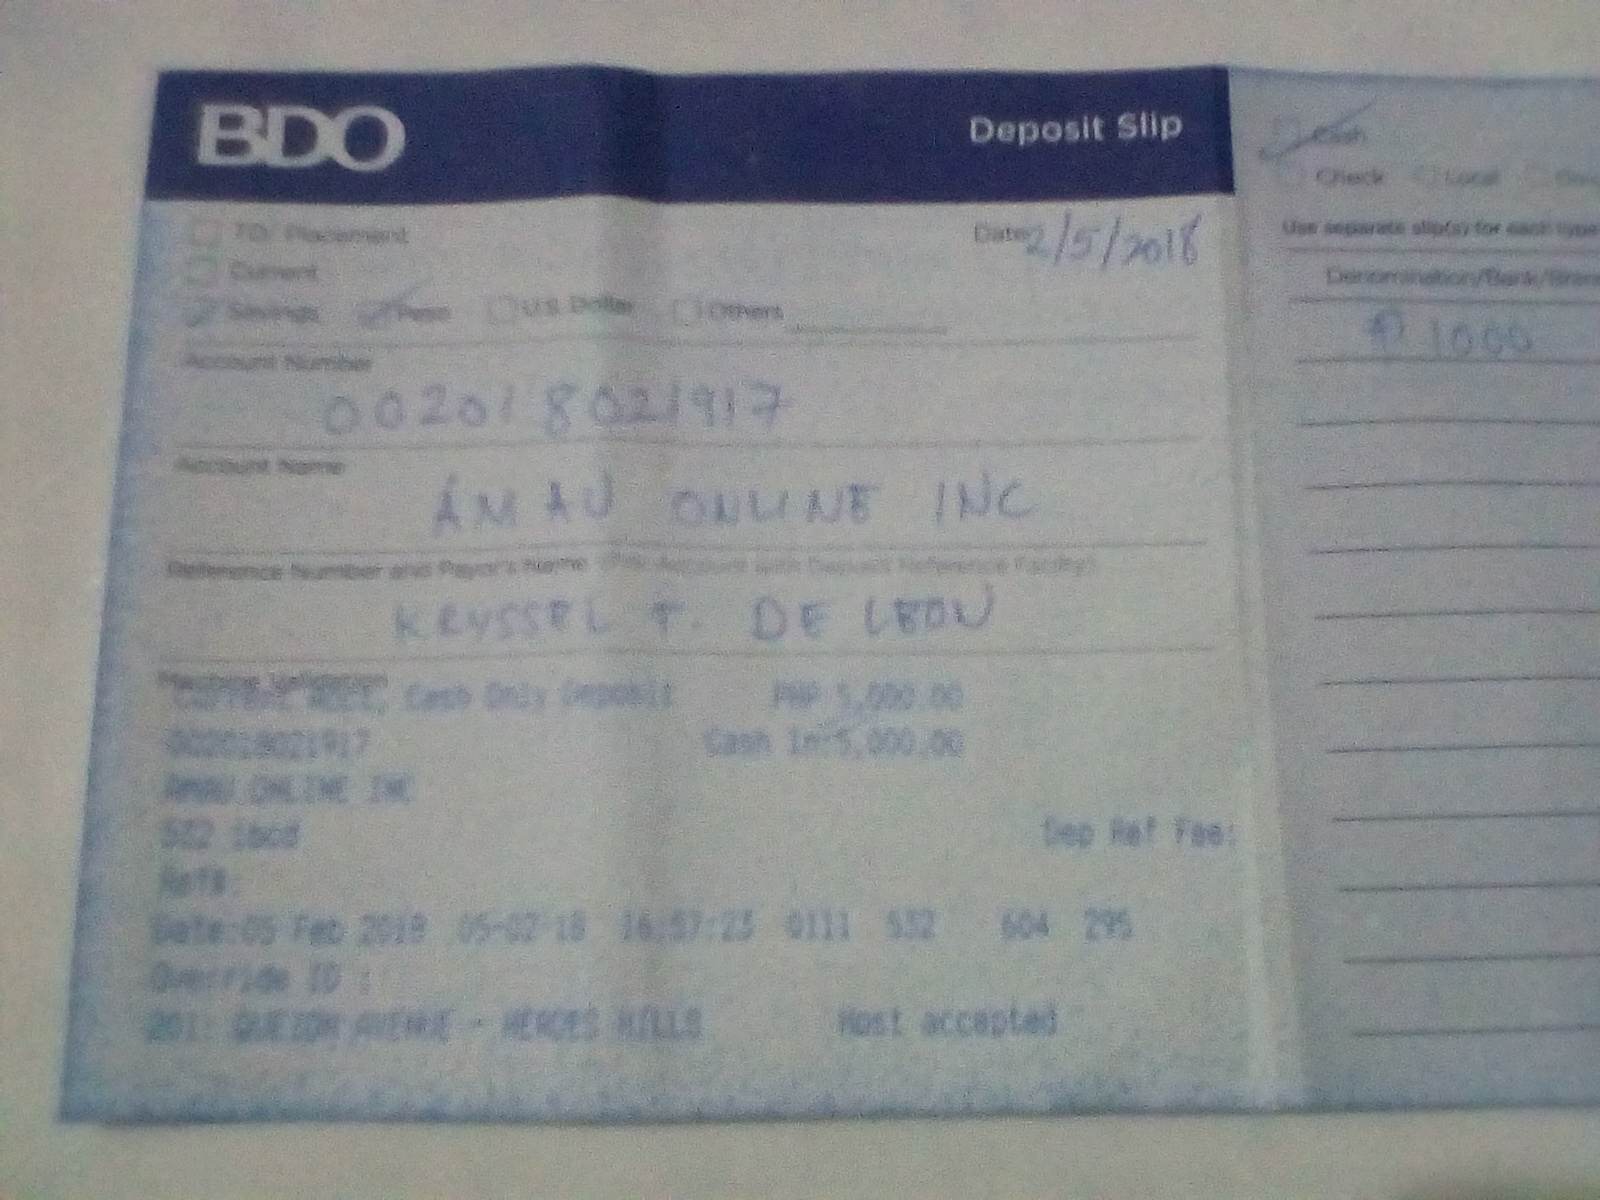 BDO
Deposit Slip
TD/ Placement
Date 2/5/2018
Current
Savings Peso U.S. Dollar Others
Account Number
002018021917
Account Name
AMAU ONLINE INC
Reference Number and Payor's Name (For Account with Deposit Reference Facility)
KRYSSEL F. DE LEON
Machine Validation
Cash Only Deposit PHP 5,000.00
002018021917 Cash In:5,000.00
AMAU ONLINE INC
532 Dep Ref Fee:
Ref#:
Date:05 Feb 2018 05-02-18 16:57:23 0111 532 604 295
Override ID :
201: QUEZON AVENUE - HEROES HILLS Host accepted
Cash
Check Local
Use separate slip(s) for each type
Denomination/Bank/
₱ 1000